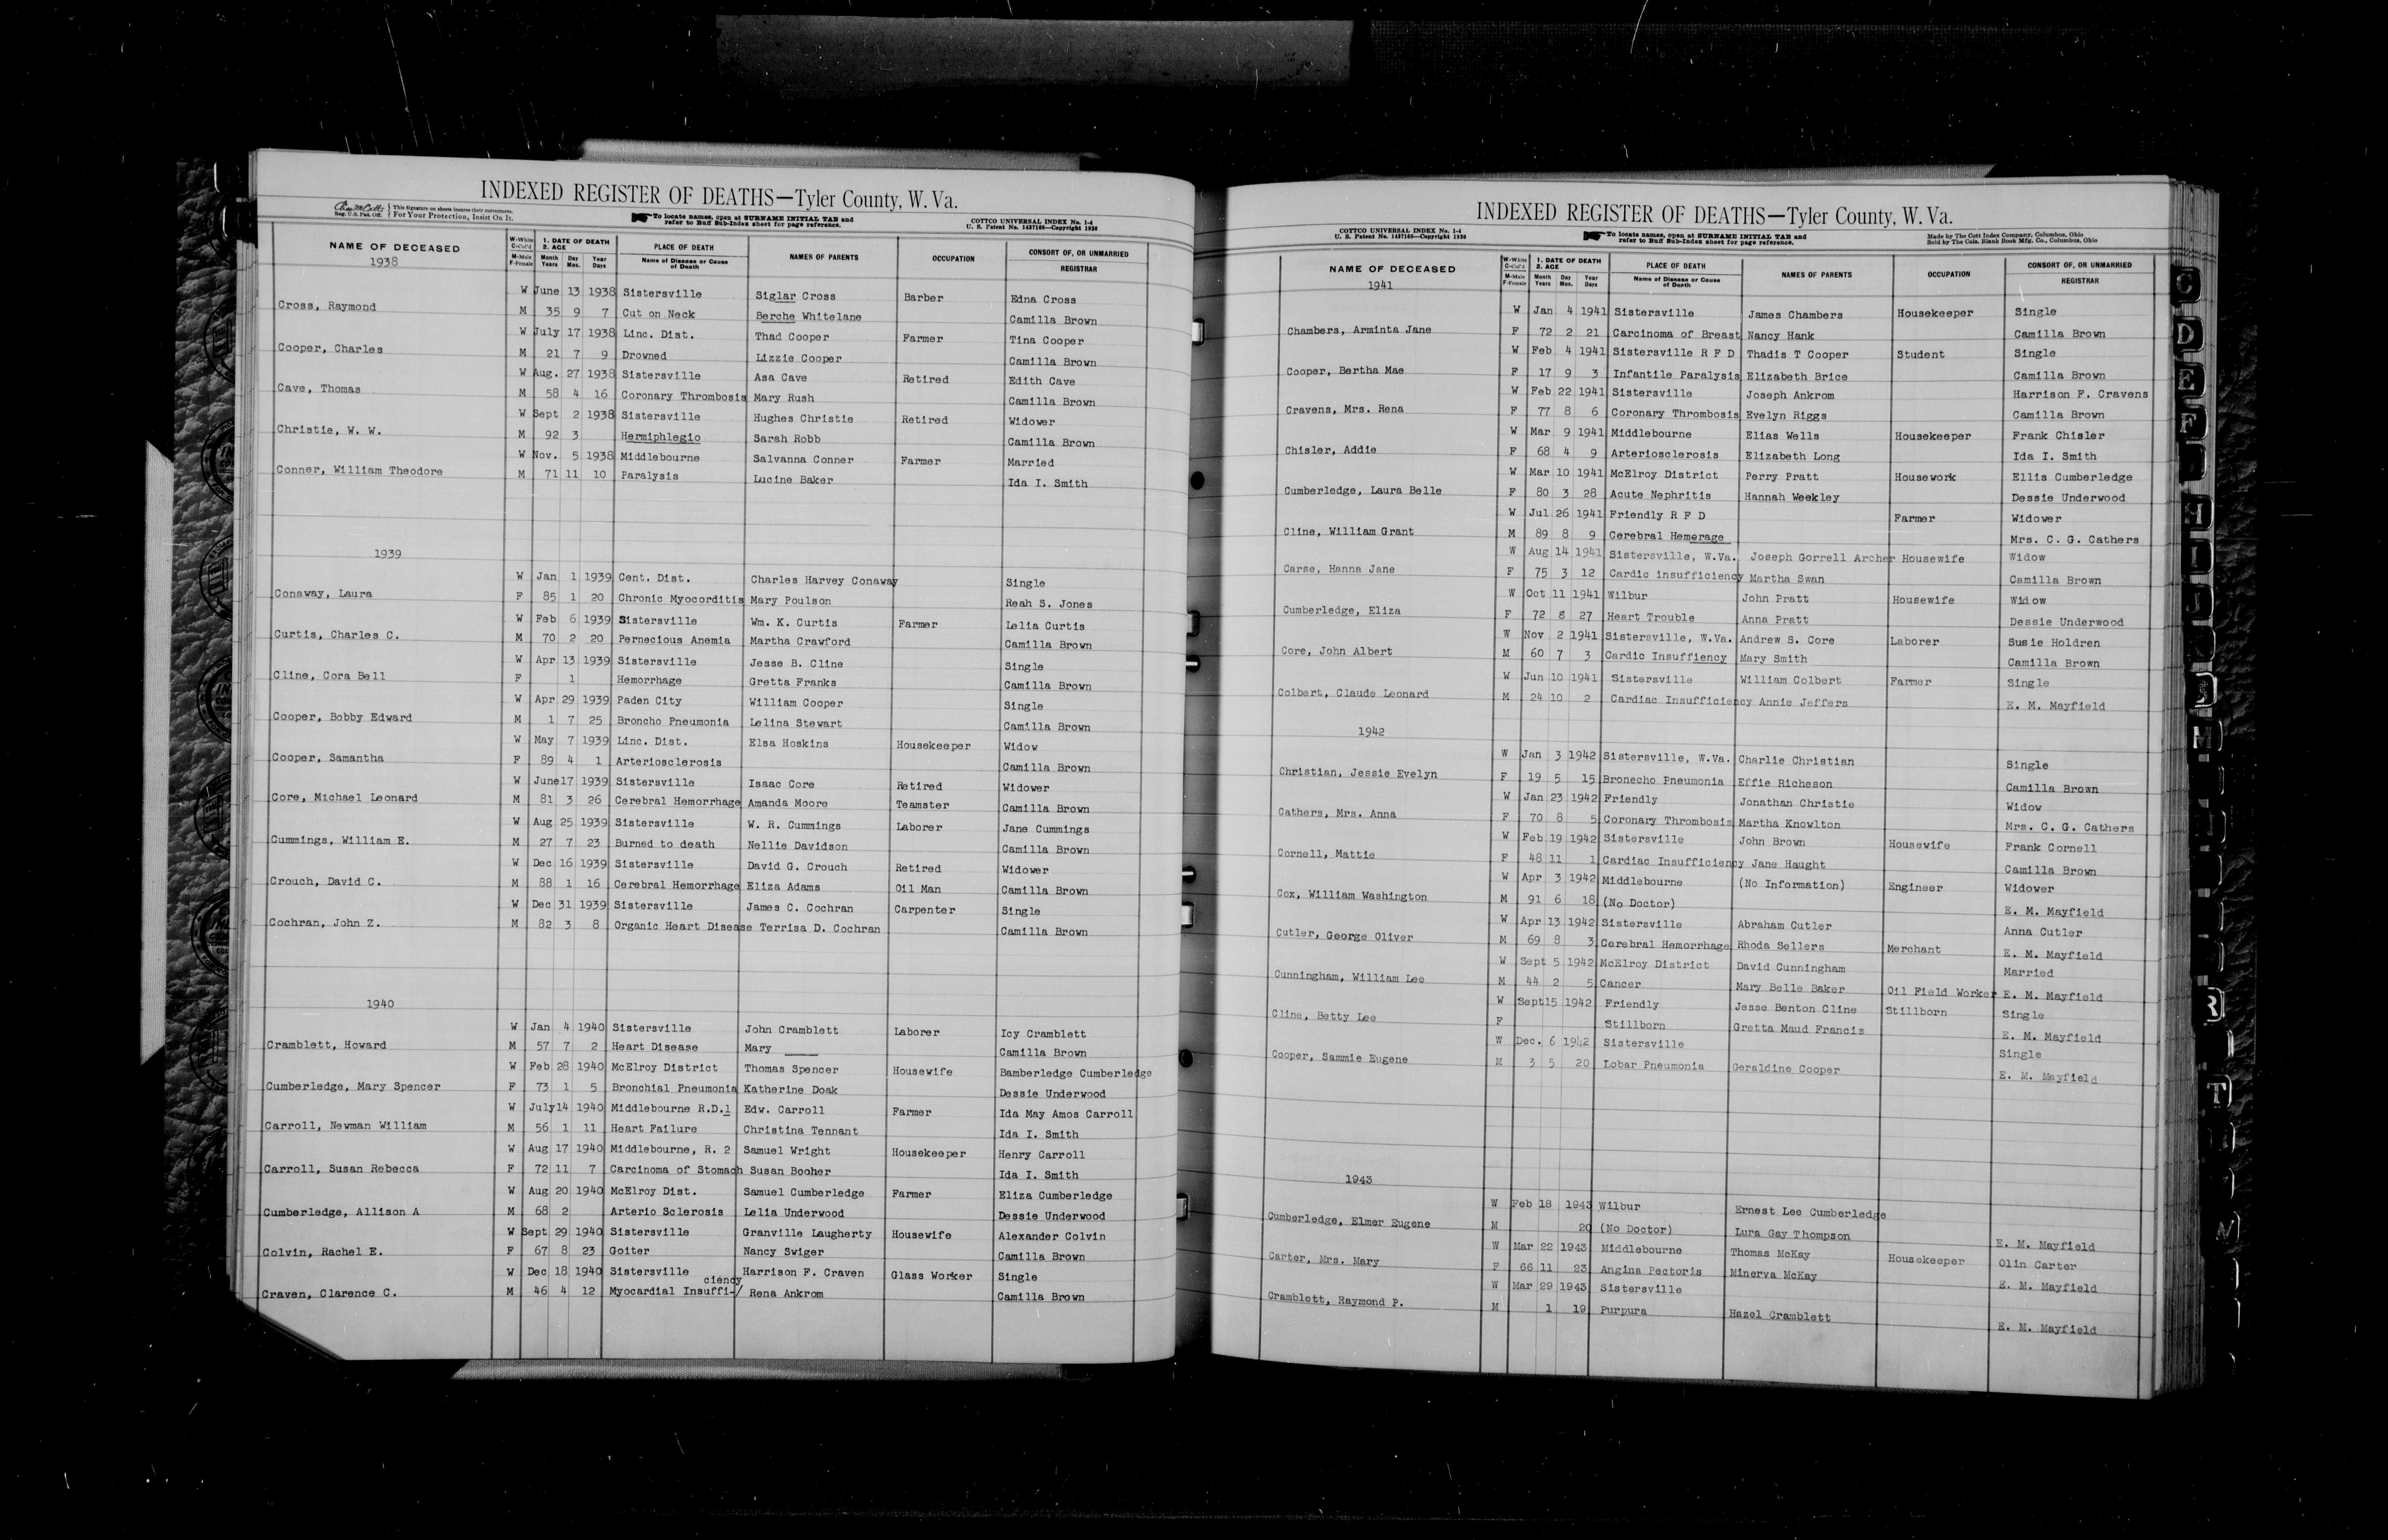 INDEXED REGISTER OF DEATHS—Tyler County, W. Va.
Reg. U.S. Pat. Off. This Signature on sheets insures their correctness. For Your Protection, Insist On It.
To locate names, open at SURNAME INITIAL TAB and refer to Buff Sub-Index sheet for page reference.
COTTCO UNIVERSAL INDEX No. 1-4
U. S. Patent No. 1437169—Copyright 1930
NAME OF DECEASED W-White C-Col'd M-Male F-Female 1. DATE OF DEATH 2. AGE Month Day Year Years Mos. Days PLACE OF DEATH Name of Disease or Cause of Death NAMES OF PARENTS OCCUPATION CONSORT OF, OR UNMARRIED REGISTRAR
1938
W June 13 1938 Sistersville Siglar Cross Barber Edna Cross
Cross, Raymond M 35 9 7 Cut on Neck Berche Whitelane Camilla Brown
W July 17 1938 Linc. Dist. Thad Cooper Farmer Tina Cooper
Cooper, Charles M 21 7 9 Drowned Lizzie Cooper Camilla Brown
W Aug. 27 1938 Sistersville Asa Cave Retired Edith Cave
Cave, Thomas M 58 4 16 Coronary Thrombosis Mary Rush Camilla Brown
W Sept 2 1938 Sistersville Hughes Christie Retired Widower
Christie, W. W. M 92 3 Hermiphlegio Sarah Robb Camilla Brown
W Nov. 5 1938 Middlebourne Salvanna Conner Farmer Married
Conner, William Theodore M 71 11 10 Paralysis Lucine Baker Ida I. Smith
1939
W Jan 1 1939 Cent. Dist. Charles Harvey Conaway Single
Conaway, Laura F 85 1 20 Chronic Myocorditis Mary Poulson Reah S. Jones
W Feb 6 1939 Sistersville Wm. K. Curtis Farmer Lelia Curtis
Curtis, Charles C. M 70 2 20 Pernecious Anemia Martha Crawford Camilla Brown
W Apr 13 1939 Sistersville Jesse B. Cline Single
Cline, Cora Bell F 1 Hemorrhage Gretta Franks Camilla Brown
W Apr 29 1939 Paden City William Cooper Single
Cooper, Bobby Edward M 1 7 25 Broncho Pneumonia Lelina Stewart Camilla Brown
W May 7 1939 Linc. Dist. Elsa Hoskins Housekeeper Widow
Cooper, Samantha F 89 4 1 Arteriosclerosis Camilla Brown
W June17 1939 Sistersville Isaac Core Retired Widower
Core, Michael Leonard M 81 3 26 Cerebral Hemorrhage Amanda Moore Teamster Camilla Brown
W Aug 25 1939 Sistersville W. R. Cummings Laborer Jane Cummings
Cummings, William E. M 27 7 23 Burned to death Nellie Davidson Camilla Brown
W Dec 16 1939 Sistersville David G. Crouch Retired Widower
Crouch, David C. M 88 1 16 Cerebral Hemorrhage Eliza Adams Oil Man Camilla Brown
W Dec 31 1939 Sistersville James C. Cochran Carpenter Single
Cochran, John Z. M 82 3 8 Organic Heart Disease Terrisa D. Cochran Camilla Brown
1940
W Jan 4 1940 Sistersville John Cramblett Laborer Icy Cramblett
Cramblett, Howard M 57 7 2 Heart Disease Mary _____ Camilla Brown
W Feb 28 1940 McElroy District Thomas Spencer Housewife Bamberledge Cumberledge
Cumberledge, Mary Spencer F 73 1 5 Bronchial Pneumonia Katherine Doak Dessie Underwood
W July14 1940 Middlebourne R.D.1 Edw. Carroll Farmer Ida May Amos Carroll
Carroll, Newman William M 56 1 11 Heart Failure Christina Tennant Ida I. Smith
W Aug 17 1940 Middlebourne, R. 2 Samuel Wright Housekeeper Henry Carroll
Carroll, Susan Rebecca F 72 11 7 Carcinoma of Stomach Susan Booher Ida I. Smith
W Aug 20 1940 McElroy Dist. Samuel Cumberledge Farmer Eliza Cumberledge
Cumberledge, Allison A M 68 2 Arterio Sclerosis Lelia Underwood Dessie Underwood
W Sept 29 1940 Sistersville Granville Laugherty Housewife Alexander Colvin
Colvin, Rachel E. F 67 8 23 Goiter Nancy Swiger Camilla Brown
W Dec 18 1940 Sistersville Harrison F. Craven Glass Worker Single
Craven, Clarence C. M 46 4 12 Myocardial Insuffi-/ciency Rena Ankrom Camilla Brown
INDEXED REGISTER OF DEATHS—Tyler County, W. Va.
COTTCO UNIVERSAL INDEX No. 1-4
U. S. Patent No. 1437169—Copyright 1930
To locate names, open at SURNAME INITIAL TAB and refer to Buff Sub-Index sheet for page reference.
Made by The Cott Index Company, Columbus, Ohio
Sold by The Cols. Blank Book Mfg. Co., Columbus, Ohio
NAME OF DECEASED W-White C-Col'd M-Male F-Female 1. DATE OF DEATH 2. AGE Month Day Year Years Mos. Days PLACE OF DEATH Name of Disease or Cause of Death NAMES OF PARENTS OCCUPATION CONSORT OF, OR UNMARRIED REGISTRAR
1941
W Jan 4 1941 Sistersville James Chambers Housekeeper Single
Chambers, Arminta Jane F 72 2 21 Carcinoma of Breast Nancy Hank Camilla Brown
W Feb 4 1941 Sistersville R F D Thadis T Cooper Student Single
Cooper, Bertha Mae F 17 9 3 Infantile Paralysis Elizabeth Brice Camilla Brown
W Feb 22 1941 Sistersville Joseph Ankrom Harrison F. Cravens
Cravens, Mrs. Rena F 77 8 6 Coronary Thrombosis Evelyn Riggs Camilla Brown
W Mar 9 1941 Middlebourne Elias Wells Housekeeper Frank Chisler
Chisler, Addie F 68 4 9 Arteriosclerosis Elizabeth Long Ida I. Smith
W Mar 10 1941 McElroy District Perry Pratt Housework Ellis Cumberledge
Cumberledge, Laura Belle F 80 3 28 Acute Nephritis Hannah Weekley Dessie Underwood
W Jul 26 1941 Friendly R F D Farmer Widower
Cline, William Grant M 89 8 9 Cerebral Hemerage Mrs. C. G. Cathers
W Aug 14 1941 Sistersville, W.Va. Joseph Gorrell Archer Housewife Widow
Carse, Hanna Jane F 75 3 12 Cardic insufficiency Martha Swan Camilla Brown
W Oct 11 1941 Wilbur John Pratt Housewife Widow
Cumberledge, Eliza F 72 8 27 Heart Trouble Anna Pratt Dessie Underwood
W Nov 2 1941 Sistersville, W.Va. Andrew S. Core Laborer Susie Holdren
Core, John Albert M 60 7 3 Cardic Insuffiency Mary Smith Camilla Brown
W Jun 10 1941 Sistersville William Colbert Farmer Single
Colbert, Claude Leonard M 24 10 2 Cardiac Insufficiency Annie Jeffers E. M. Mayfield
1942
W Jan 3 1942 Sistersville, W.Va. Charlie Christian Single
Christian, Jessie Evelyn F 19 5 15 Bronecho Pneumonia Effie Richeson Camilla Brown
W Jan 23 1942 Friendly Jonathan Christie Widow
Cathers, Mrs. Anna F 70 8 5 Coronary Thrombosis Martha Knowlton Mrs. C. G. Cathers
W Feb 19 1942 Sistersville John Brown Housewife Frank Cornell
Cornell, Mattie F 48 11 1 Cardiac Insufficiency Jane Haught Camilla Brown
W Apr 3 1942 Middlebourne (No Information) Engineer Widower
Cox, William Washington M 91 6 18 (No Doctor) E. M. Mayfield
W Apr 13 1942 Sistersville Abraham Cutler Anna Cutler
Cutler, George Oliver M 69 8 3 Cerebral Hemorrhage Rhoda Sellers Merchant E. M. Mayfield
W Sept 5 1942 McElroy District David Cunningham Married
Cunningham, William Lee M 44 2 5 Cancer Mary Belle Baker Oil Field Worker E. M. Mayfield
W Sept15 1942 Friendly Jesse Benton Cline Stillborn Single
Cline, Betty Lee F Stillborn Gretta Maud Francis E. M. Mayfield
W Dec. 6 1942 Sistersville Single
Cooper, Sammie Eugene M 3 5 20 Lobar Pneumonia Geraldine Cooper E. M. Mayfield
1943
W Feb 18 1943 Wilbur Ernest Lee Cumberledge
Cumberledge, Elmer Eugene M 20 (No Doctor) Lura Gay Thompson E. M. Mayfield
W Mar 22 1943 Middlebourne Thomas McKay Housekeeper Olin Carter
Carter, Mrs. Mary F 66 11 23 Angina Pectoris Minerva McKay E. M. Mayfield
W Mar 29 1943 Sistersville
Cramblett, Raymond P. M 1 19 Purpura Hazel Cramblett E. M. Mayfield
C
D
E
F
H
M
R
T